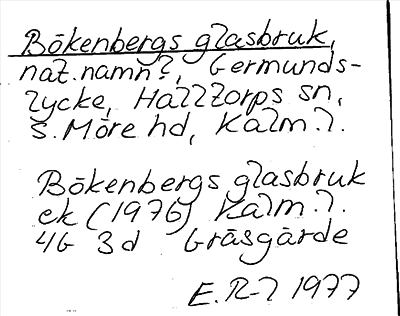 Bökenbergs glasbruk,
nat.namn?, Germunds-
lycke, Halltorps sn,
S. Möre hd, Kalm. l.
Bökenbergs glasbruk
ek (1976) Kalm. l.
4G 3d Gräsgärde
E. R-l 1977